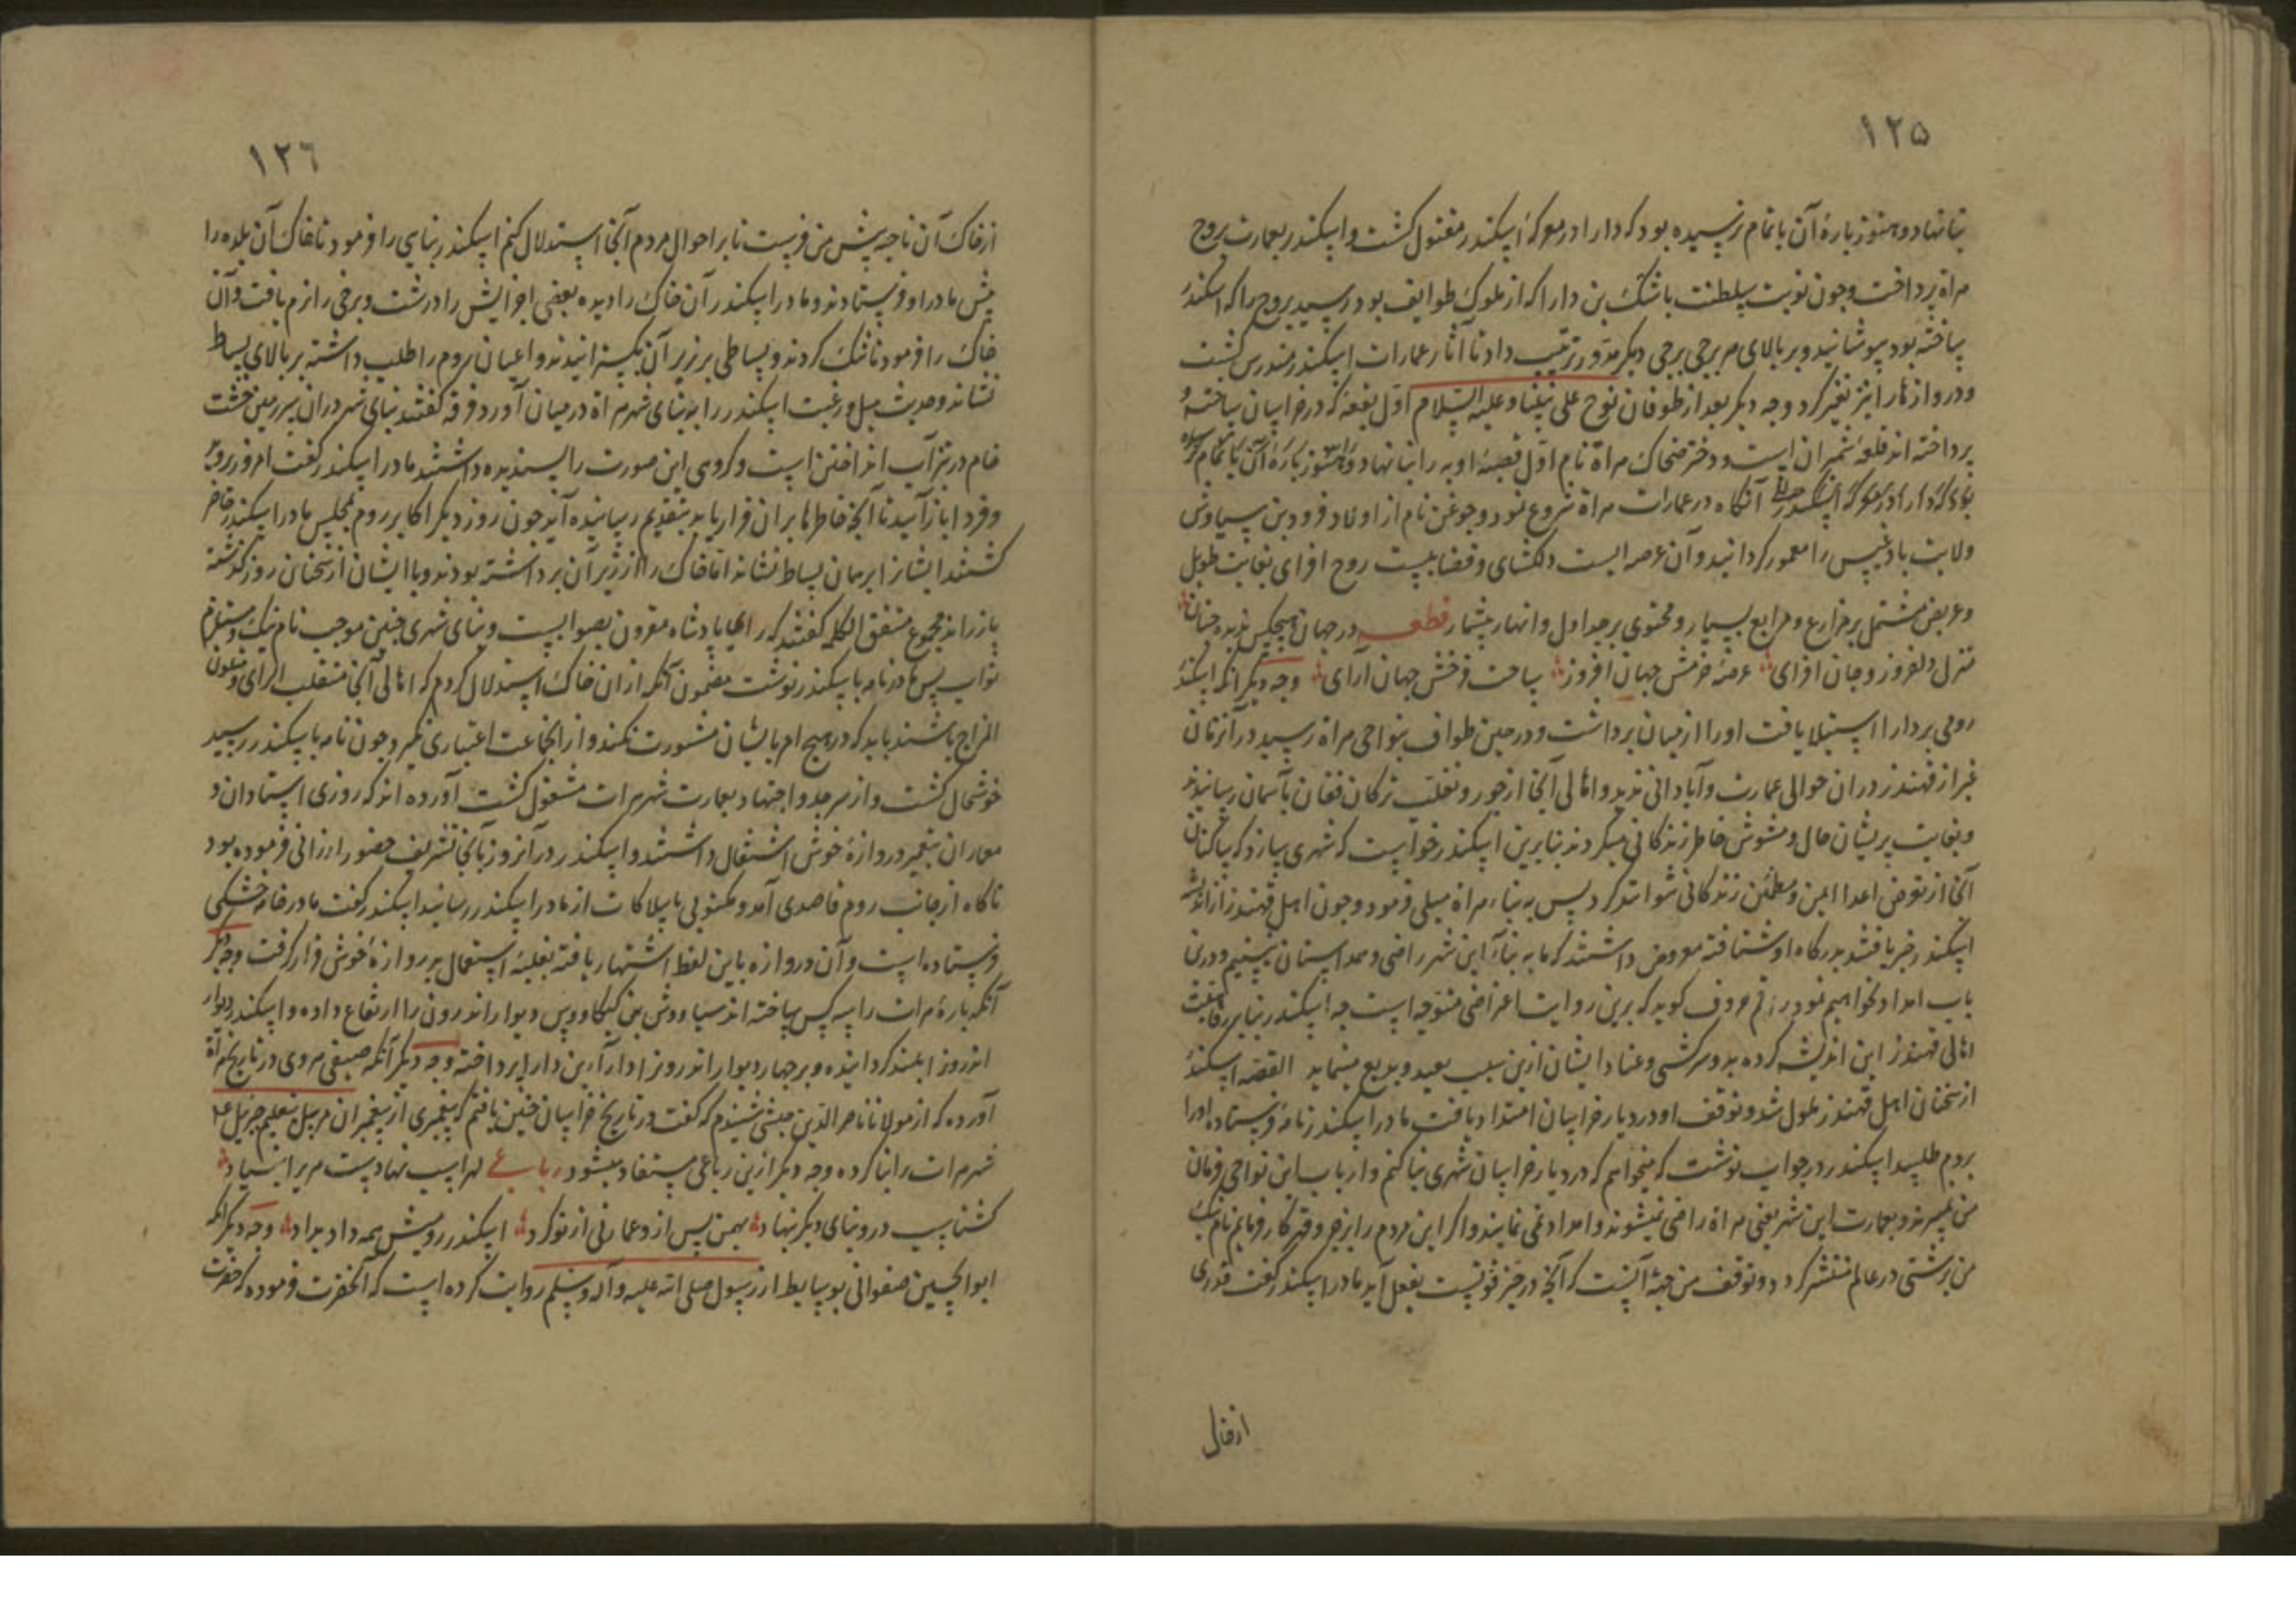 ۱۲۵
بنا نهاد و هنوز بارهٔ آن باتمام نرسیده بود که دارا در معرکهٔ اسکندر مقتول کشت و اسکندر بعمارت بروج
هراة پرداخت و جون نوبت سلطنت باشک بن دارا که از ملوک طوایف بود رسید بروج را که اسکندر
ساخته بود بپوشانید و بر بالای هر برجی برجی دیکر مدور ترتیب داد تا آثار عمارات اسکندر مندرس کشت
و دروازها را نیز تغییر کرد وجه دیکر بعد از طوفان نوح علی نبینا و علیه السلام اول بقعهٔ که در خراسان ساخته و
پرداخته اند قلعهٔ شمیران است و دختر ضحاک هراة نام اول قصبهٔ اوبه را بنا نهاد و هنوز بارهٔ آن باتمام نرسیده
بود که دارا در معرکه اسکندر آنکاه در عمارات هراة شروع نمود و جوغن نام از اولاد فرود بن سیاوش
ولایت بادغیس را معمور کردانید و آن عرصه ایست دلکشای و فضاییست روح افزای بغایت طویل
و عریض مشتمل بر مزارع و مراتع بسیار و محتوی بر جداول و انهار بیشمار قطعه در جهان هیجکس ندیده جنان
منزل دلفروز و جان افزای عرصهٔ خرمش جهان افروز ساحت فرخش جهان آرای وجه دیکر آنکه اسکندر
رومی بر دارا استیلا یافت اورا از میان برداشت و در حین طواف بنواحی هراة رسید در آنزمان
غیر از قهندز دران حوالی عمارت و آبادانی ندید و اهالی آنجا از جور و تغلب ترکان فغان بآسمان رسانیدند
و بغایت پریشان حال و مشوش خاطر زندکانی میکردند بنابرین اسکندر خواست که شهری بسازد که ساکنان
آنجا از تعرض اعدا ایمن و مطمئن زندکانی توانند کرد پس به بناء هراة میلی فرمود و جون اهل قهندز از اندیشه
اسکندر خبر یافتند بدرکاه او شتافته معروض داشتند که ما به بناء این شهر راضی و همداستان نیستیم و درین
باب امداد نخواهیم نمود راقم حروف کوید که برین روایت اعتراضی متوجه است جه اسکندر بنا بر رفاهیت
اهالی قهندز این اندیشه کرده بود و سرکشی و عناد ایشان ازین سبب بعید و بدیع مینماید القصه اسکندر
از سخنان اهل قهندز ملول شد و توقف او در دیار خراسان امتداد یافت مادر اسکندر نامه فرستاده اورا
بروم طلبید اسکندر در جواب نوشت که میخواهم که در دیار خراسان شهری بنا کنم و ارباب این نواحی فرمان
من نمیبرند و بعمارت این شهر یعنی هراة راضی نمیشوند و امداد نمی نمایند و اکر این مردم را بزجر و قهر کار فرمایم نام نیک
من بزشتی در عالم منتشر کردد و توقف من جهة آنست که آنجه در حیز قوتست بفعل آید مادر اسکندر کفت قدری
ازخاک
۱۲۶
ازخاک آن ناحیه پیش من فرست تا بر احوال مردم آنجا استدلال کنم اسکندر بنایی را فرمود تا خاک آن بلده را
پیش مادر او فرستادند و مادر اسکندر آن خاک را دیده بعضی اجزایش را درشت و برخی را نرم یافت و آن
خاک را فرمود تا خشک کردند و بساطی بر زبر آن بکسترانیدند و اعیان روم را طلب داشته بر بالای بساط
نشاند و حدیث میل و رغبت اسکندر را به بنای شهر هراة در میان آورد فرقه کفتند بنای شهر دران سرزمین خشت
خام در بیز آب انداختن است و کروهی این صورت را پسندیده داشتند مادر اسکندر کفت امروز بروید
و فردا باز آیید تا آنجه خاطرها بران قرار یابد بتقدیم رسانیده آید جون روز دیکر اکابر روم بمجلس مادر اسکندر حاضر
کشتند ایشانرا بر همان بساط نشاند اما خاک را از زیر آن برداشته بودند و با ایشان از سخنان روز کذشته
باز راند مجموع متفق الکلمه کفتند که رای پادشاه مقرون بصوابست و بنای شهری جنین موجب نام نیک و مستلزم
ثواب پس مادر نامه باسکندر نوشت مضمون آنکه ازان خاک استدلال کردم که اهالی آنجا متقلب الرای و متلون
المزاج باشند باید که در هیج امر بایشان مشورت نکند و از آنجماعت اعتباری نکیرد و جون نامه باسکندر رسید
خوشحال کشت و از سر جد و اجتهاد بعمارت شهر هرات مشغول کشت آورده اند که روزی استادان و
معماران بتعمیر دروازهٔ خوش اشتغال داشتند و اسکندر در آنروز بآنجا تشریف حضور ارزانی فرموده بود
ناکاه از جانب روم قاصدی آمد و مکتوبی با بیلاکات از مادر اسکندر رسانید اسکندر کفت مادر خامه خشکی
فرستاده است و آن دروازه باین لفظ اشتهار یافته بغلبهٔ استعمال بدروازهٔ خوش قرار کرفت وجه دیکر
آنکه بارهٔ هرات را سه کس ساخته اند سیاووش بن کیکاووس دیوار اندرون را ارتفاع داده و اسکندر دیوار
اندرو را بلند کردانیده و برجها و دیوار اندرونرا دارا بن دارا پرداخته وجه دیکر آنکه صیفی هروی در تاریخ هراة
آورده که از مولانا ناصر الدین جشتی شنیدم که کفت در تاریخ خراسان جنین یافتم که پیغمبری از پیغمبران مرسل بتعلیم جبریل ع
شهر هرات را بنا کرده وجه دیکر ازین رباعی مستفاد میشود رباعی لهراسب نهادست هری را بنیاد
کشتاسب درو بنای دیکر بنهاد بهمن پس ازو عمارتی از نو کرد اسکندر رومیش همه داد بداد وجه دیکر آنکه
ابو الحسین صفوانی بوسایط از رسول صلی الله علیه و آله و سلم روایت کرده است که آنحضرت فرموده که حضرت